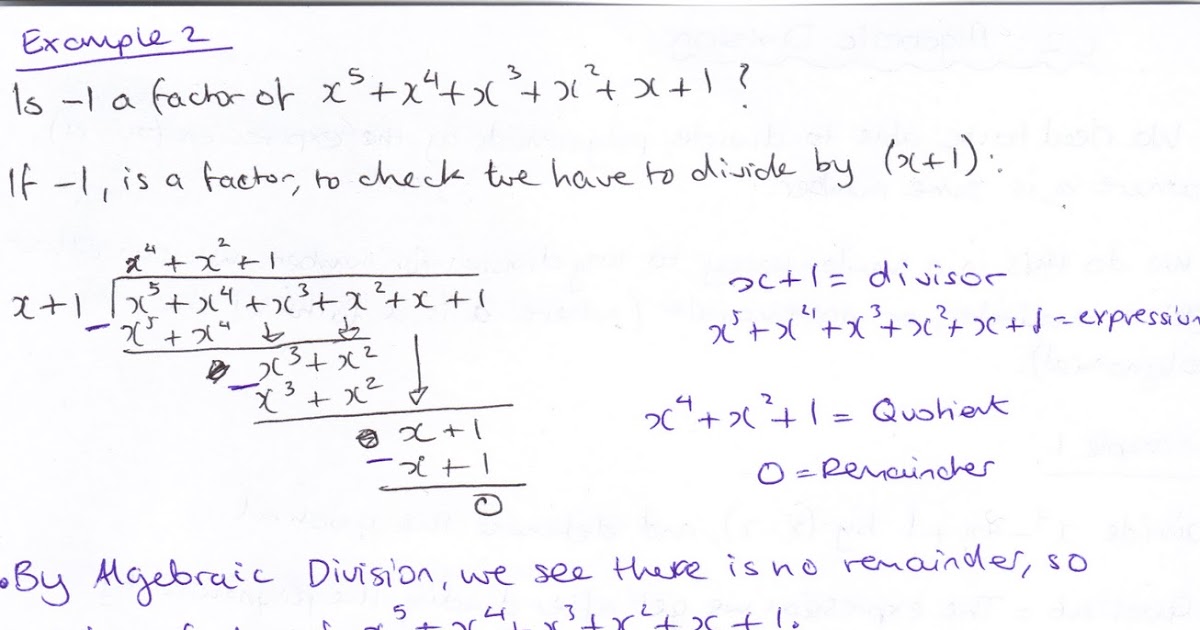 Example 2
Is -1 a factor of x⁵ + x⁴ + x³ + x² + x + 1 ?
If -1, is a factor, to check we have to divide by (x+1) :
x⁴ + x² + 1
x + 1 | x⁵ + x⁴ + x³ + x² + x + 1
- x⁵ + x⁴
x³ + x²
- x³ + x²
x + 1
- x + 1
0
x + 1 = divisor
x⁵ + x⁴ + x³ + x² + x + 1 = expression
x⁴ + x² + 1 = Quotient
0 = Remainder
• By Algebraic Division, we see there is no remainder, so
x⁵ + x⁴ + x³ + x² + x + 1.